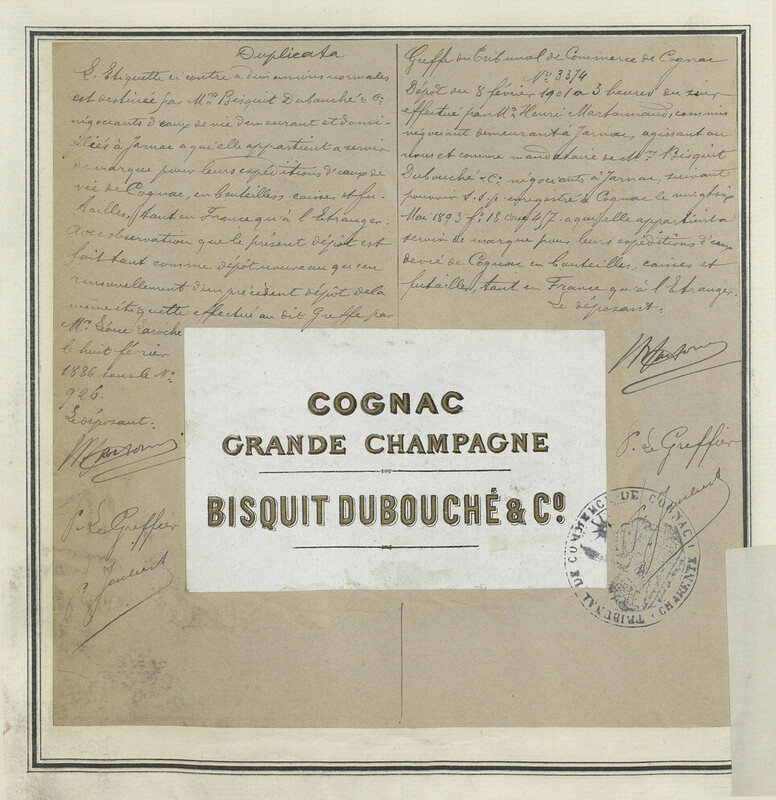 Duplicata
L'Etiquette ci contre à dimensions normales
est destinée par Mrs Bisquit Dubouché & Cie
négociants d'eaux de vie demeurant et domi-
ciliés à Jarnac a qu'elle appartient a servir
de marque pour leurs expéditions d'eaux de
vie de Cognac, en bouteilles, caisses et fu-
tailles, tant en France qu'à l'Etranger.
Avec observation que le présent dépôt est
fait tant comme dépôt nouveau qu'en
renouvellement d'un précédent dépôt de la
même étiquette effectué au dit Greffe par
Mr Léonce Laroche
le huit février
1886 sous le No
926.
Le déposant.
P. Le Greffier
Greffe du Tribunal de Commerce de Cognac
No 3374
Dépôt du 8 février 1901 à 3 heures du soir
effectué par Mr Henri Martonnaud, commis
négociant demeurant à Jarnac, agissant au
nom et comme mandataire de Mrs Bisquit
Dubouché & Cie négociants à Jarnac, suivant
pouvoir s.s.p. enregistré à Cognac le vingt six
Mai 1893 fo 18 case 457. a qu'elle appartient a
servir de marque pour leurs expéditions d'eaux
de vie de Cognac en bouteilles, caisses et
futailles, tant en France qu'à l'Etranger.
Le déposant.
P. Le Greffier
COGNAC
GRANDE CHAMPAGNE
BISQUIT DUBOUCHÉ & Co
TRIBUNAL DE COMMERCE DE COGNAC
CHARENTE